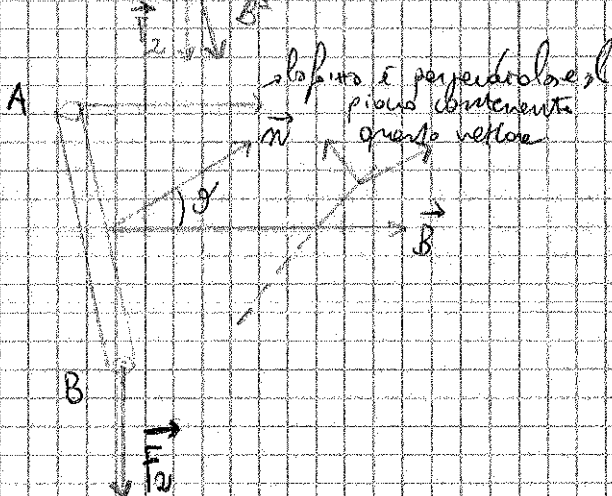 F₂
A
è perpendicolare al
piano contenente
questo vettore
n
θ
B
B
F₂